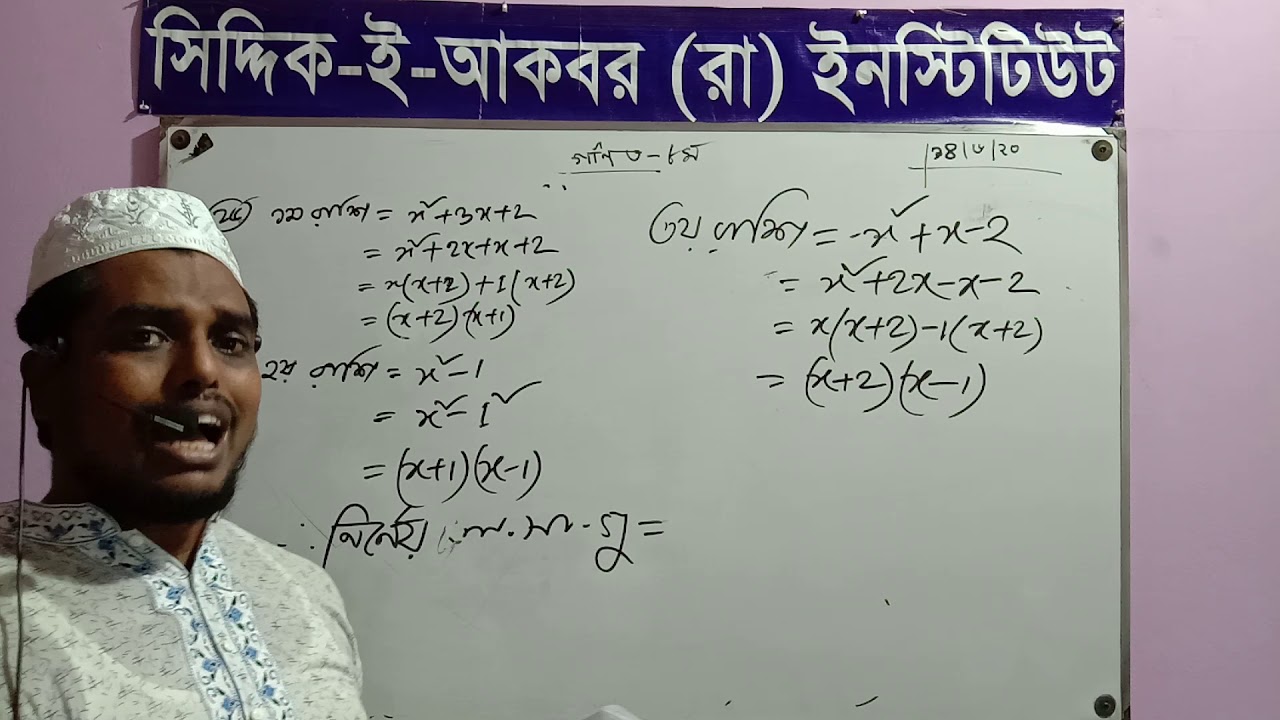 সিদ্দিক-ই-আকবর (রা) ইনস্টিটিউট
গণিত-৮ম
১৪/৬/২০
১ম রাশি = x²+3x+2
= x²+2x+x+2
= x(x+2)+1(x+2)
= (x+2)(x+1)
২য় রাশি = x²-1
= x²-1²
= (x+1)(x-1)
∴ নির্ণেয় ল.সা.গু =
৩য় রাশি = x²+x-2
= x²+2x-x-2
= x(x+2)-1(x+2)
= (x+2)(x-1)